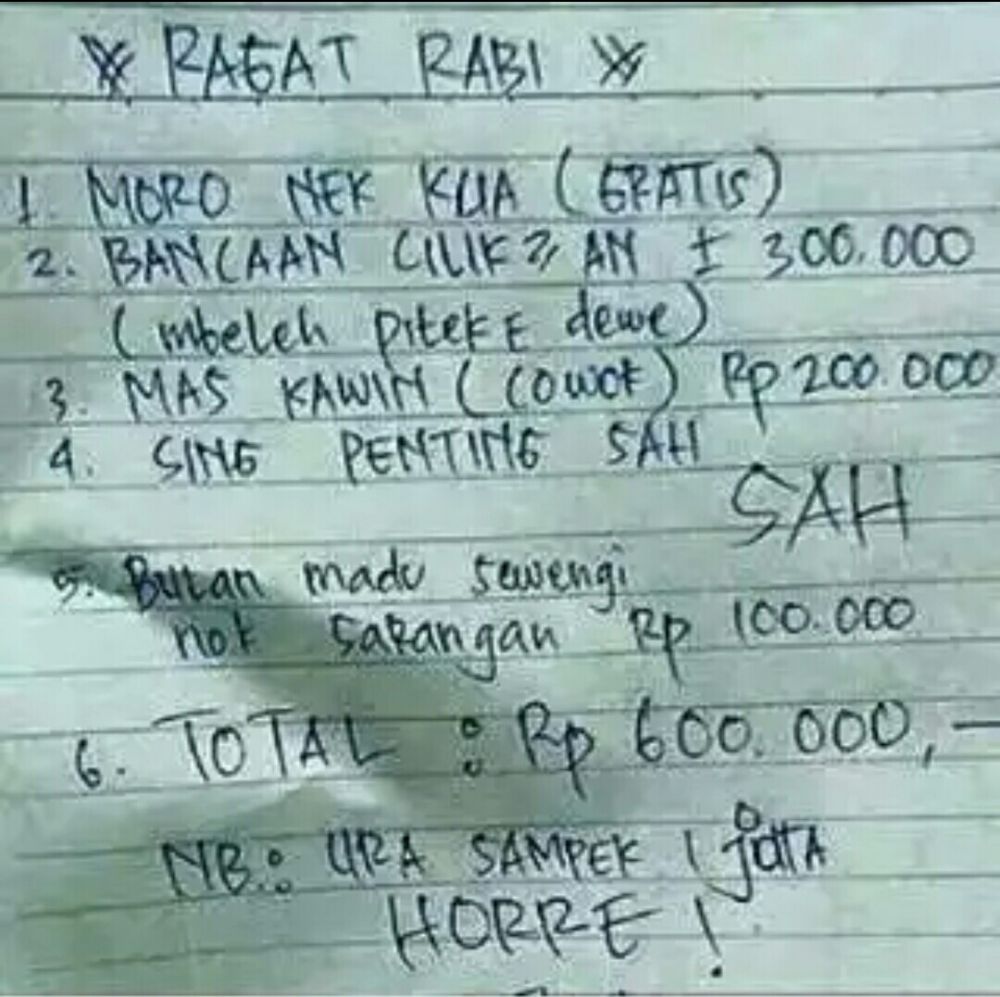 RAGAT RABI
1. MORO NEK KUA (GRATIS)
2. BANCAAN CILIK2 AN ± 300.000
(mbeleh pitek E dewe)
3. MAS KAWIN (COWOK) Rp 200.000
4. SING PENTING SAH
SAH
5. Bulan madu sewengi
nok sarangan Rp 100.000
6. TOTAL : Rp 600.000,-
NB: ORA SAMPEK 1 jUTA
HORRE!